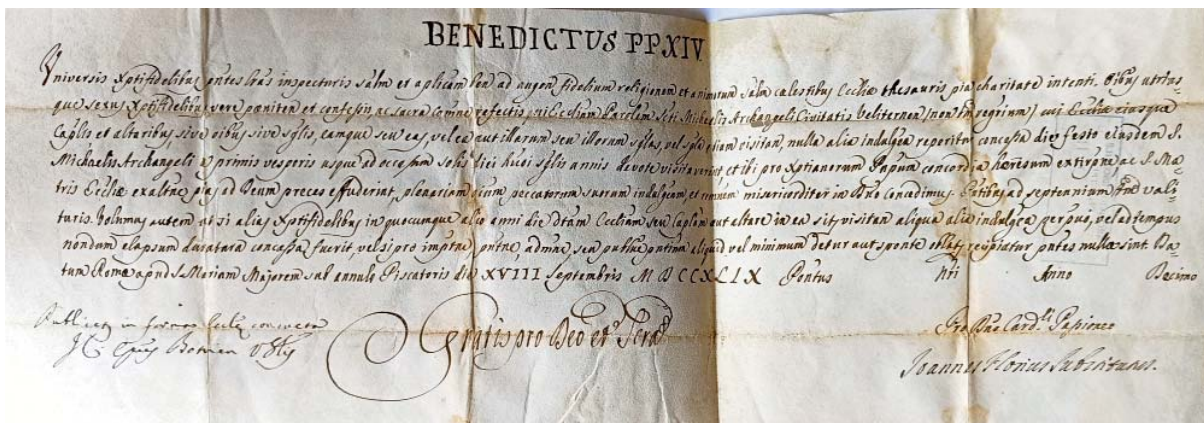 BENEDICTUS PP XIV
Universis Xptifidelibus pntes lras inspecturis salm et aplicam ben ad augen fidelium religionem et animarum salm celestibus Ecclie thesauris pia charitate intenti. Oibus utrius-
que sexus Xptifidelibus vere poeniten et confessis, ac sacra comne refectis, qui Ecclesiam Parolem Scti Michaelis Archangeli Civitatis (non tn regrium) cui Eccliae eiusque
Caplis et altaribus, sive oibus sive sglis, eamque seu eas, vel ea aut illarum seu illorum sglas, vel sgla etiam visitan, nulla alia indulgea reperitur concessa die festo ejusdem S.
Michaelis Archangeli a primis vesperis usque ad occasum solis diei hujoi sglis annis devote visitaverint, et ibi pro Xptianorum Pnpum concordia, haeresum extirpne ac S. Ma-
tris Eccliae exaltne pias ad Deum preces effuderint, plenariam oium peccatorum suorum indulgeam, et remnem misericorditer in Dno concedimus. Pntibus ad septennium tm vali-
turis. Volumus autem ut si alias Xptifidelibus in quocumque alio anni die dtam Eccliam seu Caplam aut altare in ea sit, visitan aliqua alia indulgea perpuo, vel ad tempus
nondum elapsum duratura concessa fuerit, vel si pro impne, pntne, admne, seu publne pntium aliquid vel minimum detur aut sponte oblat, recipiatur pntes nullae sint. Da-
tum Romae apud S. Mariam Majorem sub annulo Piscatoris die XVIII Septembris MDCCXLIX Pontus Nri Anno Decimo
in forma Eccle consueta
Gratis pro Deo et
Pro Dno Card.li Passioneo
Joannes Florius Substitutus.